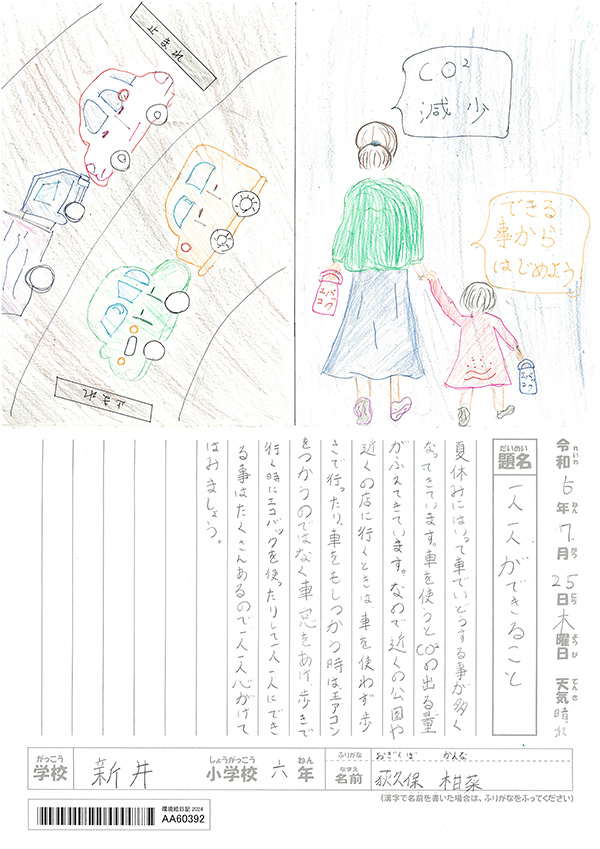 止まれ
止まれ
CO²
減少
できる
事から
はじめよう
エコバック
エコバック
令和6年7月25日木曜日 天気晴れ
れいわ ねん がつ にち よう び てんき
だいめい
題名 一人一人ができること
夏休みにはいって車でいどうする事が多く
なってきています。車を使うとCO²の出る量
がふえてきています。なので近くの公園や
近くの店に行くときは車を使わず歩
きで行ったり、車をもしつかう時は、エアコン
をつかうのではなく車窓をあけ、歩きで
行く時にエコバックを使ったりして一人一人にでき
る事はたくさんあるので一人一人心がけて
はみましょう。
がっこう しょうがっこう ねん
学校 新井 小学校 六年
ふりがな おぎくぼ かんな
なまえ
名前 荻久保 柑菜
(漢字で名前を書いた場合は、ふりがなをふってください)
環境絵日記2024
AA60392